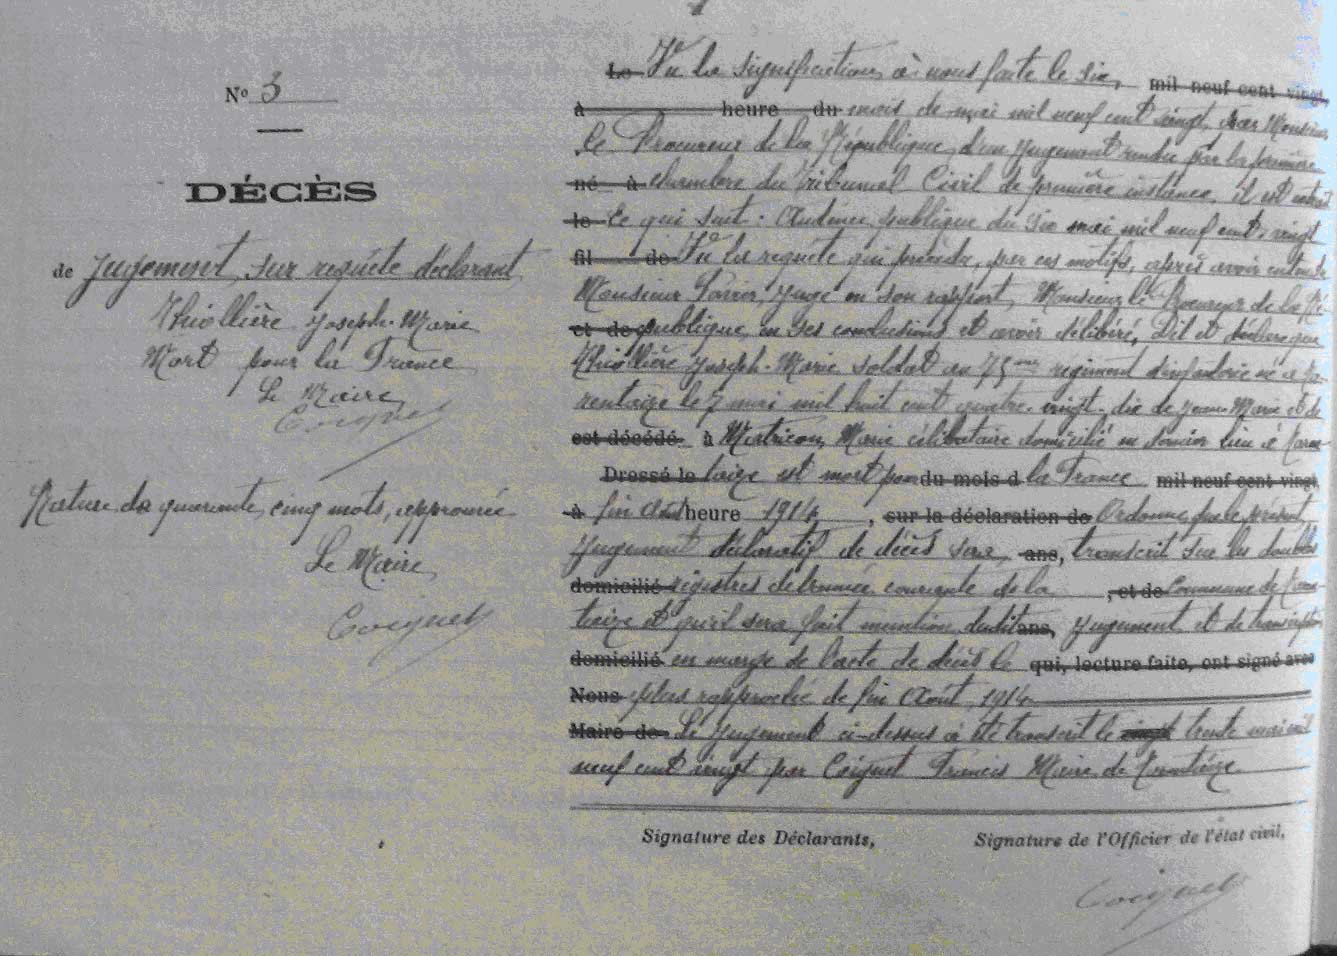 N° 3
DÉCÈS
de Jugement sur requête déclarant
Thiollière Joseph-Marie
Mort pour la France
Le Maire
Coignet
Rature de quarante cinq mots, approuvée
Le Maire
Coignet
Le Vu la signification à nous faite le six, mil neuf cent vingt,
à heure du mois de mai mil neuf cent vingt, par Monsieur
le Procureur de la République, d'un jugement rendu par la première
né à chambre du Tribunal Civil de première instance, il est extrait
le ce qui suit : Audience publique du six mai mil neuf cent vingt
fil de Vu la requête qui précède, par ces motifs, après avoir entendu
Monsieur juge en son rapport, Monsieur le Procureur de la Ré
et de publique, en ses conclusions et avoir délibéré, Dit et déclare que
Thiollière Joseph-Marie soldat au 75me régiment d'infanterie né à Ta
rentaize le 7 mai mil huit cent quatre-vingt-dix de Jean-Marie et de
est décédé à Matricon, Marie célibataire domicilié en dernier lieu à Taren
Dressé le taize est mort pour du mois d la France mil neuf cent vingt,
à fin Août heure 1914, sur la déclaration de Ordonne que le présent
jugement déclaratif de décès sera ans, transcrit sur les doubles
domicilié registres de l'année courante de la , et de Commune de Taren
taize et qu'il sera fait mention dudit ans, jugement et de transcription
domicilié en marge de l'acte de décès le qui, lecture faite, ont signé avec
Nous plus rapproché de fin Août 1914
Maire de Le jugement ci-dessus a été transcrit le vingt trente mai mil
neuf cent vingt par Coignet Francis Maire de Tarentaize
Signature des Déclarants, Signature de l'Officier de l'état civil,
Coignet